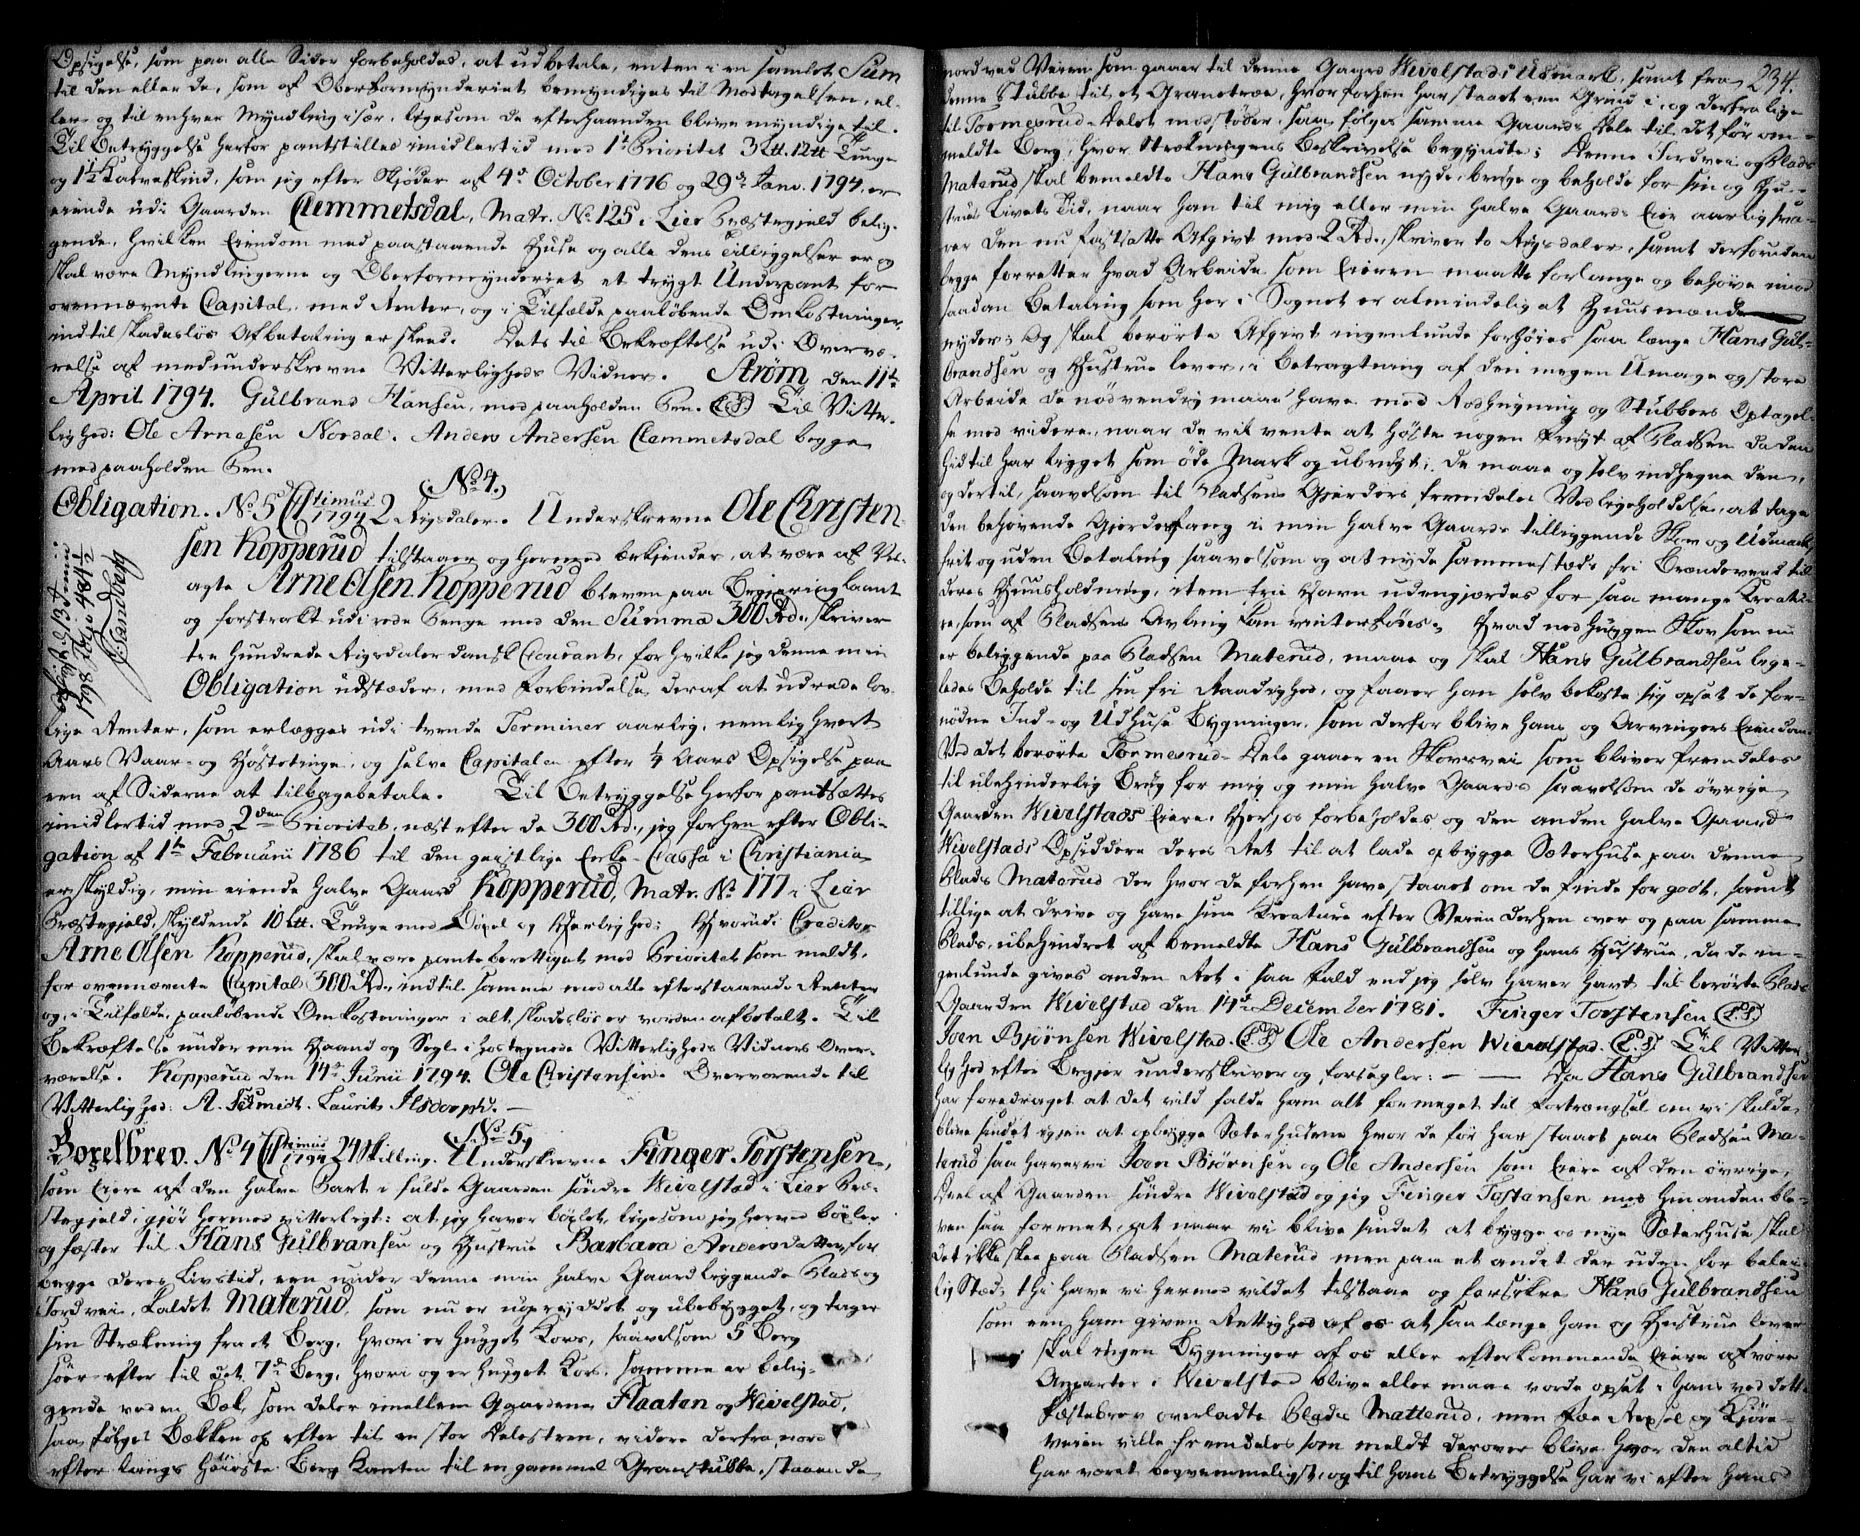 Opsigelse, som paa alle Sider forbeholdes, at udbetale, enten i en samlet Sum
til den eller de, som af Oberformynderiet bemyndiges til Modtagelsen, el-
ler og til enhver Myndling især, ligesom de efterhaanden blive myndige til.
Til Betryggelse herfor pantstilles imidlertid med 1te Prioritet 3 Lt. 12 tt Tunge
og 1½ Kalveskind, som jeg efter Skjøder af 4de October 1776 og 29de Janv. 1794, er
eiende udi Gaarden Clemmetsdal, Matr. No. 125 i Lier Præstegjeld belig-
gende, hvilken Eiendom med paastaaende Huse og alle dens Tilliggelser er og
skal være Myndlingerne og Oberformynderiet et trygt Underpant for
ovennævnte Capital, med Renter, og i Tilfælde paaløbende Omkostninger,
indtil skadesløs Afbetaling er skeed. Dets til Bekræftelse udi Overvæ-
relse af medunderskrevne Vitterligheds Vidner. Strøm den 11te
April 1794. Gulbrand Hansen, med paaholden Pen. (L.S.) Til Vitter-
lighed: Ole Arnesen Nordal. Anders Andersen Clemmetsdal begge
med paaholden Pen.
No. 4.
Obligation. No. 5 Ctimus 1794 2 Rigsdaler. Underskrevne Ole Christen-
sen Kopperud tilstaaer og hermed bekjender, at være af Vel-
agte Arne Olsen Kopperud bleven paa Begjering laant
og forstrakt udi rede Penge med den Summa 300 Rd., skriver
tre Hundrede Rigsdaler dansk Courant, for hvilke jeg denne min
Obligation udstæder, med Forbindelse deraf at udrede lov-
lige Renter, som erlægges udi tvende Terminer aarlig, nemlig hvert
Aars Vaar- og Høstetinge, og selve Capitalen efter ¼ Aars Opsigelse paa
een af Siderne at tilbagebetale. Til Betryggelse herfor pantsættes
imidlertid med 2den Prioritet, næst efter de 300 Rd., jeg forhen efter Obli-
gation af 1te Februarii 1786 til den geistlige Enke-Cassa i Christiania
er skyldig, min eiende halve Gaard Kopperud, Matr. No. 177 i Lier
Præstegjeld, skyldende 10 Lt. Tunge med Bøxel og Herlighed: Hvorudi Creditor
Arne Olsen Kopperud, skal være panteberettiget med Prioritet som meldt,
for ovennævnte Capital 300 Rd., indtil samme med alle efterstaaende Renter
og, i Tilfælde, paaløbende Omkostninger i alt skadesløs er vorden afbetalt. Til
Bekræftelse under min Haand og Segl i hostegnede Vitterligheds Vidners Over-
værelse. Kopperud den 14de Junii 1794. Ole Christensen. Overværende til
Vitterlighed: A. Schmidt. Laurits Ilsdorph. —
No. 5.
Boxelbrev. No. 4 Ctimus 1794 24 Skilling. Underskrevne Finger Torstensen,
som Eiere af den halve Part i fulde Gaarden søndre Wivelstad i Lier Præ-
stegjeld, gjør hermed vitterligt: at jeg haver bøxlet, ligesom jeg herved bøxler
og fæster til Hans Gulbransen og Hustrue Barbara Andersdatter, for
begge deres Livstid, een under denne min halve Gaard liggende Plads og
Jordvei, kaldet Materud, som nu er uopryddet og ubebygget, og tager
sin Strækning fra et Berg, hvori er hugget Kors, saavelsom 5 Berg
søer efter til det 7de Berg, hvori og er hugget Kors, samme er belig-
gende ved en Bæk, som deler imellem Gaardene Flaaten og Wivelstad,
saa følges Bækken op efter til en stor Delesteen, videre derfra nor-
efter langs høieste Berg Kanten til en gammel Granstubbe, staaende
234.
nord ved Veien som gaaer til denne Gaard Wivelstads Udmark, samt fra
denne Stubbe til et Granetræe, hvor forhen har staaet een Grind i, og derfra lige
til Tormesrud Delet modstøder, saa følges samme Gaards Dele til det før om-
meldte Berg, hvor Strækningens Beskrivelse begyndte; Denne Jordvei og Plads
Materud skal bemeldte Hans Gulbrandsen nyde, bruge og beholde for sin og Hu-
strues Livets Tid, naar han til mig eller min halve Gaards Eier aarlig sva-
rer den nu fastsatte Afgivt med 2 Rd., skriver to Rigsdaler, samt desforuden
begge forretter hvad Arbeide som Eieren maatte forlange og behøve imod
saadan Betaling som her i Sognet er almindelig at Huusmænde
nyder; Og skal berørte Afgivt ingenlunde forhøies saa længe Hans Gul-
brandsen og Hustrue lever, i Betragtning af den megen Umage og store
Arbeide de nødvendig maae have med Rødhugning og Stubbers Optagel-
se med videre, naar de vil vente at høste nogen Frugt af Pladsen da den
hidtil har ligget som øde Mark og ubrugt; De maae og selv indhegne den,
og dertil, saavelsom til Pladsens Gjerders fremdeles Vedligeholdelse, at tage
den behøvende Gjerdefang i min halve Gaards tilliggende Skov og Udmark,
frit og uden Betaling saavelsom og at nyde sammestæds fri Brændeved til
deres Huusholdning, item fri Havn udengjerdes for saa mange Kreatu-
re, som af Pladsens Avling kan vinterfødes; Hvad nedhuggen Skov som nu
er beliggende paa Pladsen Materud, maae og skal Hans Gulbrandsen lige-
ledes beholde til sin fri Raadighed, og faaer han selv bekoste sig opsat de for-
nødne Ind- og Udhuse Bygninger, som derfor blive hans og Arvingers Eiendom.
Ved det berørte Tormesrud-Dele gaaer en Skovvei som bliver fremdeles
til ubehinderlig Brug for mig og min halve Gaard saavelsom de øvrige
Gaarden Wivelstads Eiere. Herhos forbeholdes og den anden halve Gaard
Wivelstads Opsiddere deres Ret til at lade opbygge Sæterhuse paa denne
Plads Materud der hvor de forhen have staaet om de finde for godt, samt
tillige at drive og have sine Kreature efter Veien derhen over og paa samme
Plads, ubehindret af bemeldte Hans Gulbrandsen og Hans Hustrue, da de in-
genlunde gives anden Ret i saa Fald end jeg selv haver havt til berørte Plads.
Gaarden Wivelstad den 14de December 1781. Finger Torstensen (L.S.)
Joen Bjørnsen Wivelstad. (L.S.) Ole Andersen Wivelstad. (L.S.) Til Vitter-
lighed efter Begjer underskriver og forsegler: — — Da Hans Gulbrandsen
har foredraget at det vild falde ham alt for meget til Fortrængsel om vi skulde
blive sindet igjen at opbygge Sæterhusene hvor de før har staaet paa Pladsen Ma-
terud saa haver vi Joen Bjørnsen og Ole Andersen som Eiere af den øvrige
Deel af Gaarden søndre Wivelstad og jeg Finger Tostensen med hinanden ble-
ven saa forenet, at naar vi blive sindet at bygge os nye Sæterhuse skal
det ikke skee paa Pladsen Materud men paa et andet der uden for belei-
lig Sted, thi have vi hermed vildet tilstaae og forsikre Hans Gulbrandsen
som een ham given Rettighed af os at saa længe han og Hustrue lever
skal ingen Bygninger af os eller efterkommende Eiere af vore
Anparter i Wivelstad blive eller maae vorde opsat i hans ved dette
Fæstebrev overladte Plads Matterud, men Fæe Repsel og Kjøre-
veien ville fremdeles som meldt derover blive hvor den altid
har været beqvemmeligst, og til hans Betryggelse har vi efter Hans